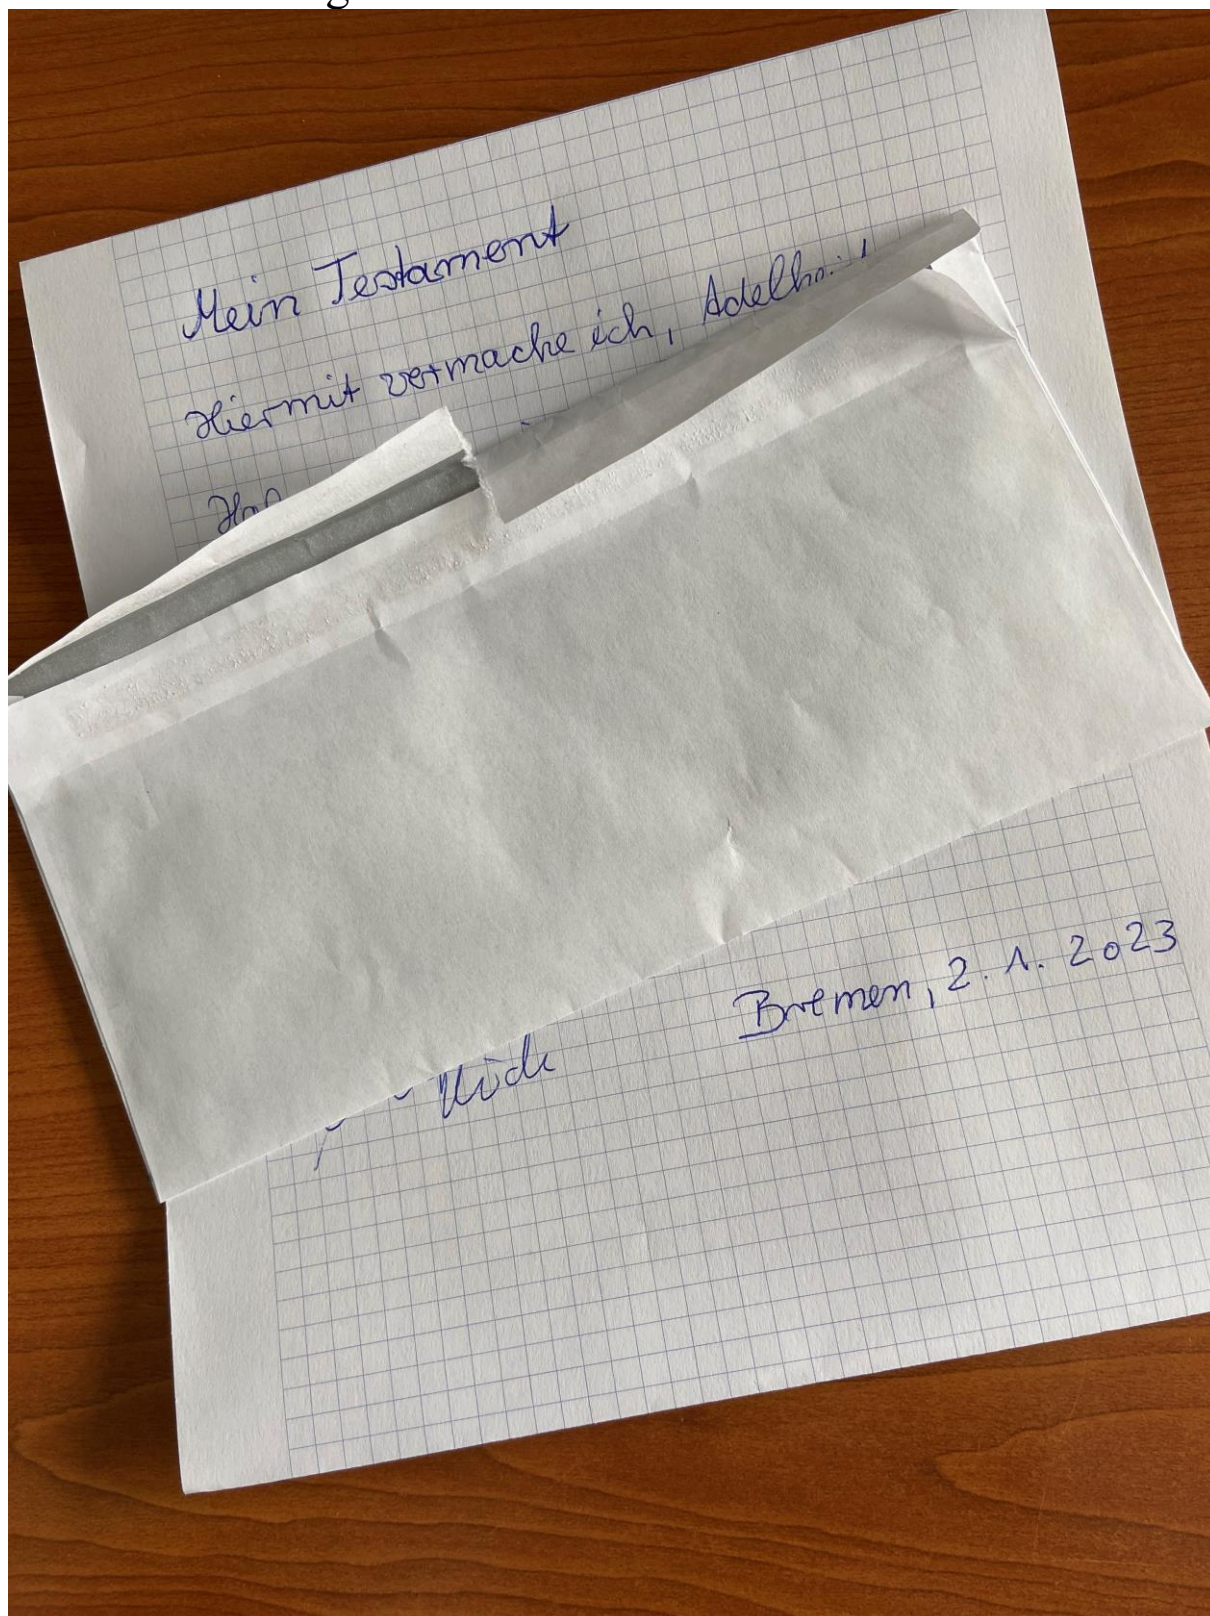 Mein Testament
Hiermit vermache ich, Adelheid
Bremen, 2. 1. 2023